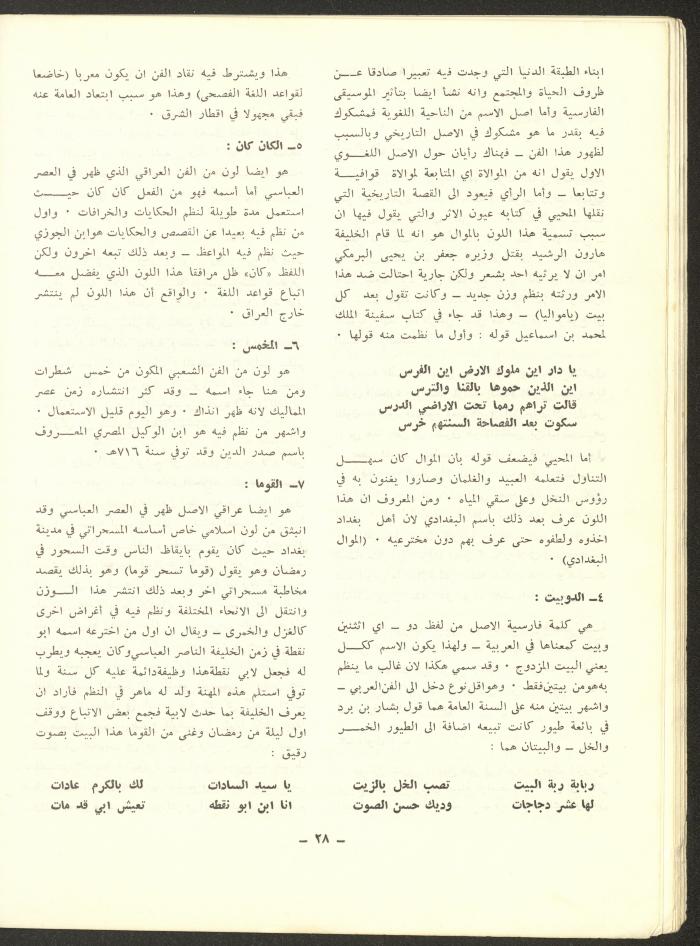 ابناء الطبقة الدنيا التي وجدت فيه تعبيرا صادقا عـــن
ظروف الحياة والمجتمع وانه نشأ ايضا بتأثير الموسيقى
الفارسية وأما اصل الاسم من الناحية اللغوية فمشكوك
فيه بقدر ما هو مشكوك في الاصل التاريخي وبالسبب
لظهور هذا الفن ــ فهناك رأيان حول الاصل اللغـــوي
الاول يقول انه من الموالاة اي المتابعة لموالاة قوافيـــة
وتتابعا ــ وأما الرأي فيعود الى القصة التاريخية التي
نقلها المحيي في كتابه عيون الاثر والتي يقول فيها ان
سبب تسمية هذا اللون بالموال هو انه لما قام الخليفة
هارون الرشيد بقتل وزيره جعفر بن يحيى البرمكي
امر ان لا يرثيه احد بشعر ولكن جارية احتالت ضد هذا
الامر ورثته بنظم وزن جديد ــ وكانت تقول بعد كل
بيت (ياموالیا) ــ وهذا قد جاء في كتاب سفينة الملك
لمحمد بن اسماعيل قوله : وأول ما نظمت منه قولها ٠
يا دار اين ملوك الارض اين الفرس
اين الذين حموها بالقنا والترس
قالت تراهم رمما تحت الاراضي الدرس
سكوت بعد الفصاحة السنتهم خرس
أما المحيي فيضعف قوله بأن الموال كان سهـــل
التناول فتعلمه العبيد والغلمان وصاروا يغنون به في
رؤوس النخل وعلى سقي المياه ٠ ومن المعروف ان هذا
اللون عرف بعد ذلك باسم البغدادي لان أهل بغداد
اخذوه ولطفوه حتى عرف بهم دون مخترعيه ٠ (الموال
البغدادي) ٠
٤ــ الدوبيت :
هي كلمة فارسية الاصل من لفظ دو ــ اي اثنين
وبيت كمعناها في العربية ــ ولهذا يكون الاسم ككـــل
يعني البيت المزدوج ٠ وقد سمي هكذا لان غالب ما ينظم
به هو من بيتين فقط ٠ وهو اقل نوع دخل الى الفن العربي ــ
واشهر بيتين منه على السنة العامة هما قول بشار بن برد
في بائعة طيور كانت تبيعه اضافة الى الطيور الخمـــر
والخل ــ والبيتان هما :
ربابة ربة البيت تصب الخل بالزيت
لها عشر دجاجات وديك حسن الصوت
هذا ويشترط فيه نقاد الفن ان يكون معربا (خاضعا
لقواعد اللغة الفصحى) وهذا هو سبب ابتعاد العامة عنه
فبقي مجهولا في اقطار الشرق ٠
٥ــ الكان كان :
هو ايضا لون من الفن العراقي الذي ظهر في العصر
العباسي أما أسمه فهو من الفعل كان كان حيـــث
استعمل مدة طويلة لنظم الحكايات والخرافات ٠ واول
من نظم فيه بعيدا عن القصص والحكايات هو ابن الجوزي
حيث نظم فيه المواعظ ــ وبعد ذلك تبعه اخرون ولكن
اللفظ «كان» ظل مرافقا هذا اللون الذي يفضل معـــه
اتباع قواعد اللغة ٠ والواقع أن هذا اللون لم ينتشر
خارج العراق ٠
٦ــ المخمس :
هو لون من الفن الشعبي المكون من خمس شطرات
ومن هنا جاء اسمه ــ وقد كثر انتشاره زمن عصر
المماليك لانه ظهر انذاك ٠ وهو اليوم قليل الاستعمال ٠
واشهر من نظم فيه هو ابن الوكيل المصري المعـــروف
باسم صدر الدين وقد توفي سنة ٧١٦هـ ٠
٧ــ القوما :
هو ايضا عراقي الاصل ظهر في العصر العباسي وقد
انبثق من لون اسلامي خاص أساسه المسحراتي في مدينة
بغداد حيث كان يقوم بايقاظ الناس وقت السحور في
رمضان وهو يقول (قوما تسحر قوما) وهو بذلك يقصد
مخاطبة مسحراتي اخر وبعد ذلك انتشر هذا الـــوزن
وانتقل الى الانحاء المختلفة ونظم فيه في أغراض اخرى
كالغزل والخمرى ــ ويقال ان اول من اخترعه اسمه ابو
نقطة في زمن الخليفة الناصر العباسي وكان يعجبه ويطرب
له فجعل لابي نقطة هذا وظيفة دائمة عليه كل سنة ولما
توفي استلم هذه المهنة ولد له ماهر في النظم فاراد ان
يعرف الخليفة بما حدث لابية فجمع بعض الاتباع ووقف
اول ليلة من رمضان وغنى من القوما هذا البيت بصوت
رقيق :
يا سيد السادات لك بالكرم عادات
انا ابن ابو نقطه تعيش ابي قد مات
ــ ٢٨ ــ